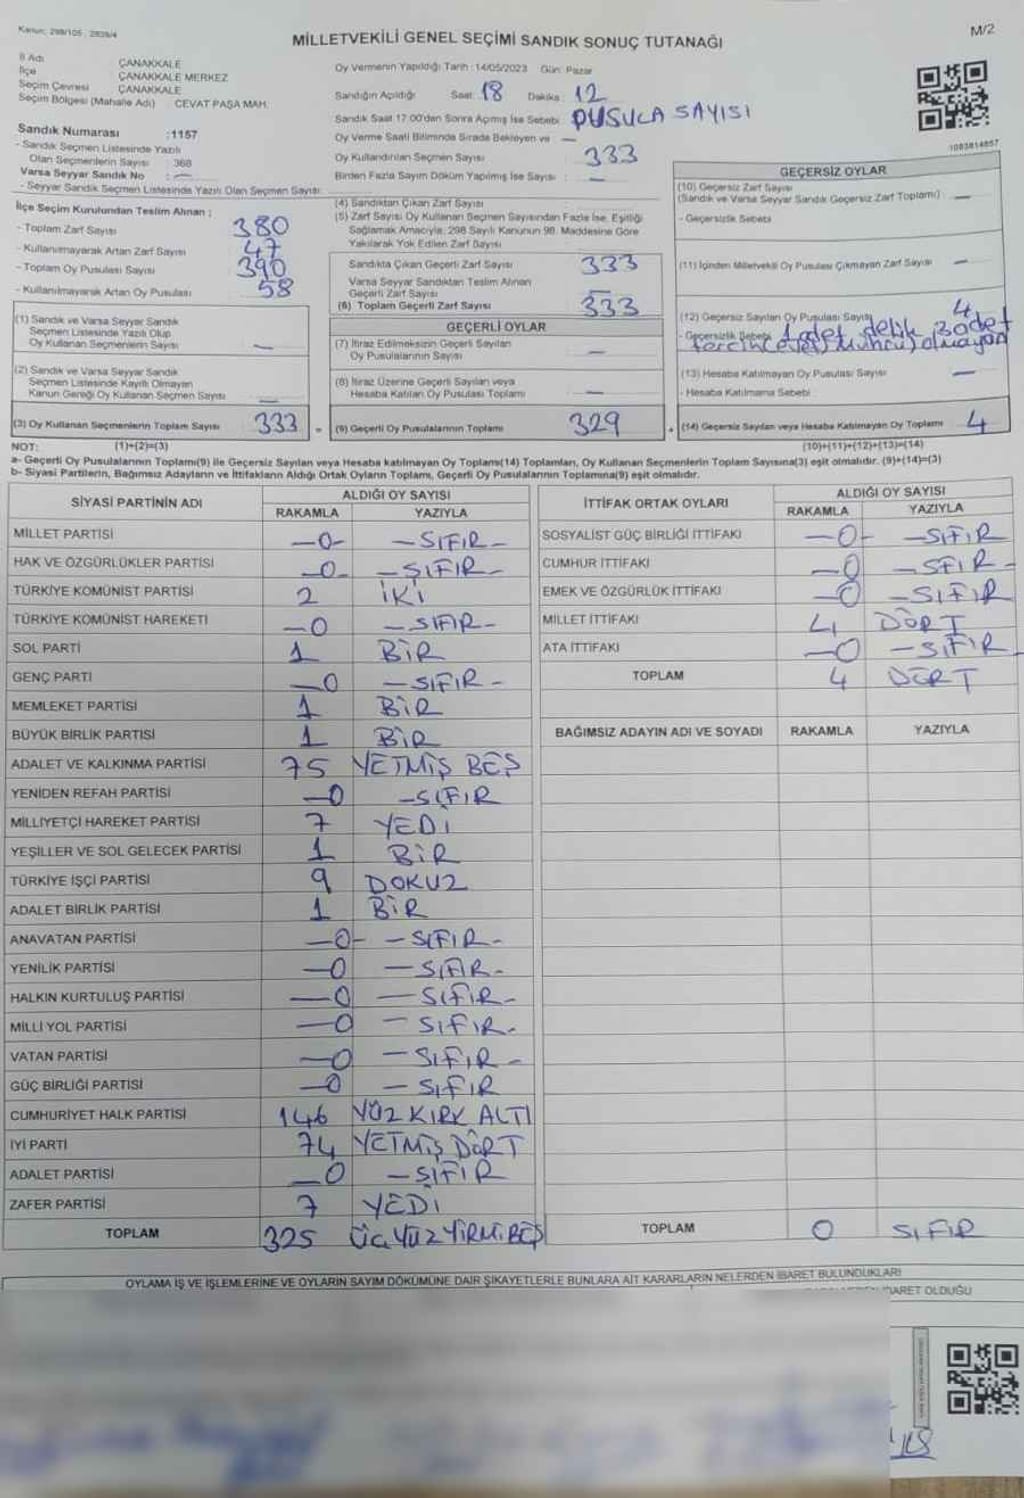 Kanun: 298/105, 2839/4
MİLLETVEKİLİ GENEL SEÇİMİ SANDIK SONUÇ TUTANAĞI
M/2
İl Adı ÇANAKKALE
İlçe ÇANAKKALE MERKEZ
Seçim Çevresi ÇANAKKALE
Seçim Bölgesi (Mahalle Adı) CEVAT PAŞA MAH.
Sandık Numarası :1157
- Sandık Seçmen Listesinde Yazılı
Olan Seçmenlerin Sayısı : 368
Varsa Seyyar Sandık No : —
- Seyyar Sandık Seçmen Listesinde Yazılı Olan Seçmen Sayısı:
Oy Vermenin Yapıldığı Tarih : 14/05/2023 Gün: Pazar
Sandığın Açıldığı Saat: 18 Dakika: 12
Sandık Saat 17:00'den Sonra Açılmış İse Sebebi: PUSULA SAYISI
Oy Verme Saati Bitiminde Sırada Bekleyen ve —
Oy Kullandırılan Seçmen Sayısı 333
Birden Fazla Sayım Döküm Yapılmış İse Sayısı : —
1083814857
İlçe Seçim Kurulundan Teslim Alınan :
- Toplam Zarf Sayısı 380
- Kullanılmayarak Artan Zarf Sayısı 47
- Toplam Oy Pusulası Sayısı 390
- Kullanılmayarak Artan Oy Pusulası 58
(1) Sandık ve Varsa Seyyar Sandık
Seçmen Listesinde Yazılı Olup
Oy Kullanan Seçmenlerin Sayısı —
(2) Sandık ve Varsa Seyyar Sandık
Seçmen Listesinde Kayıtlı Olmayan
Kanun Gereği Oy Kullanan Seçmen Sayısı —
(3) Oy Kullanan Seçmenlerin Toplam Sayısı 333
(1)+(2)=(3)
(4) Sandıktan Çıkan Zarf Sayısı
(5) Zarf Sayısı Oy Kullanan Seçmen Sayısından Fazla İse, Eşitliği
Sağlamak Amacıyla; 298 Sayılı Kanunun 98. Maddesine Göre
Yakılarak Yok Edilen Zarf Sayısı
Sandıkta Çıkan Geçerli Zarf Sayısı 333
Varsa Seyyar Sandıktan Teslim Alınan
Geçerli Zarf Sayısı —
(6) Toplam Geçerli Zarf Sayısı 333
GEÇERLİ OYLAR
(7) İtiraz Edilmeksizin Geçerli Sayılan
Oy Pusulalarının Sayısı —
(8) İtiraz Üzerine Geçerli Sayılan veya
Hesaba Katılan Oy Pusulası Toplamı —
= (9) Geçerli Oy Pusulalarının Toplamı 329
GEÇERSİZ OYLAR
(10) Geçersiz Zarf Sayısı
(Sandık ve Varsa Seyyar Sandık Geçersiz Zarf Toplamı) —
- Geçersizlik Sebebi
(11) İçinden Milletvekili Oy Pusulası Çıkmayan Zarf Sayısı —
(12) Geçersiz Sayılan Oy Pusulası Sayısı 4
- Geçersizlik Sebebi 1 adet delik 3 adet
tercih (evet) mührü olmayan
(13) Hesaba Katılmayan Oy Pusulası Sayısı —
- Hesaba Katılmama Sebebi
+ (14) Geçersiz Sayılan veya Hesaba Katılmayan Oy Toplamı 4
(10)+(11)+(12)+(13)=(14)
NOT:
a- Geçerli Oy Pusulalarının Toplamı(9) ile Geçersiz Sayılan veya Hesaba katılmayan Oy Toplamı(14) Toplamları, Oy Kullanan Seçmenlerin Toplam Sayısına(3) eşit olmalıdır. (9)+(14)=(3)
b- Siyasi Partilerin, Bağımsız Adayların ve İttifakların Aldığı Ortak Oyların Toplamı, Geçerli Oy Pusulalarının Toplamına(9) eşit olmalıdır.
SİYASİ PARTİNİN ADI ALDIĞI OY SAYISI
RAKAMLA YAZIYLA
MİLLET PARTİSİ —0— —SIFIR—
HAK VE ÖZGÜRLÜKLER PARTİSİ —0— —SIFIR—
TÜRKİYE KOMÜNİST PARTİSİ 2 İKİ
TÜRKİYE KOMÜNİST HAREKETİ —0 —SIFIR—
SOL PARTİ 1 BİR
GENÇ PARTİ —0 —SIFIR—
MEMLEKET PARTİSİ 1 BİR
BÜYÜK BİRLİK PARTİSİ 1 BİR
ADALET VE KALKINMA PARTİSİ 75 YETMİŞ BEŞ
YENİDEN REFAH PARTİSİ —0 —SIFIR
MİLLİYETÇİ HAREKET PARTİSİ 7 YEDİ
YEŞİLLER VE SOL GELECEK PARTİSİ 1 BİR
TÜRKİYE İŞÇİ PARTİSİ 9 DOKUZ
ADALET BİRLİK PARTİSİ 1 BİR
ANAVATAN PARTİSİ —0— —SIFIR—
YENİLİK PARTİSİ —0 —SIFIR—
HALKIN KURTULUŞ PARTİSİ —0 —SIFIR—
MİLLİ YOL PARTİSİ —0 —SIFIR—
VATAN PARTİSİ —0 —SIFIR—
GÜÇ BİRLİĞİ PARTİSİ —0 —SIFIR
CUMHURİYET HALK PARTİSİ 146 YÜZ KIRK ALTI
İYİ PARTİ 74 YETMİŞ DÖRT
ADALET PARTİSİ —0 —SIFIR
ZAFER PARTİSİ 7 YEDİ
TOPLAM 325 ÜÇ YÜZ YİRMİ BEŞ
İTTİFAK ORTAK OYLARI ALDIĞI OY SAYISI
RAKAMLA YAZIYLA
SOSYALİST GÜÇ BİRLİĞİ İTTİFAKI —0— —SIFIR
CUMHUR İTTİFAKI —0 —SFIR—
EMEK VE ÖZGÜRLÜK İTTİFAKI —0 —SIFIR
MİLLET İTTİFAKI 4 DÖRT
ATA İTTİFAKI —0 —SIFIR
TOPLAM 4 DÖRT
BAĞIMSIZ ADAYIN ADI VE SOYADI RAKAMLA YAZIYLA
TOPLAM 0 SIFIR
OYLAMA İŞ VE İŞLEMLERİNE VE OYLARIN SAYIM DÖKÜMÜNE DAİR ŞİKAYETLERLE BUNLARA AİT KARARLARIN NELERDEN İBARET BULUNDUKLARI
İBARET OLDUĞU